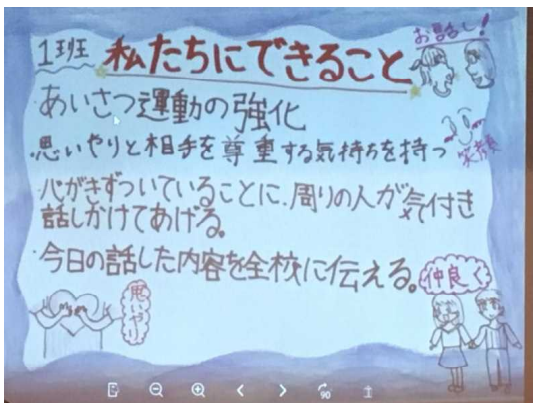 お話し!
1班 私たちにできること
・あいさつ運動の強化
・思いやりと相手を尊重する気持ちを持つ
笑顔
・心がきずついていることに、周りの人が気付き
話しかけてあげる。
・今日の話した内容を全校に伝える。
仲良く
思いやり
90